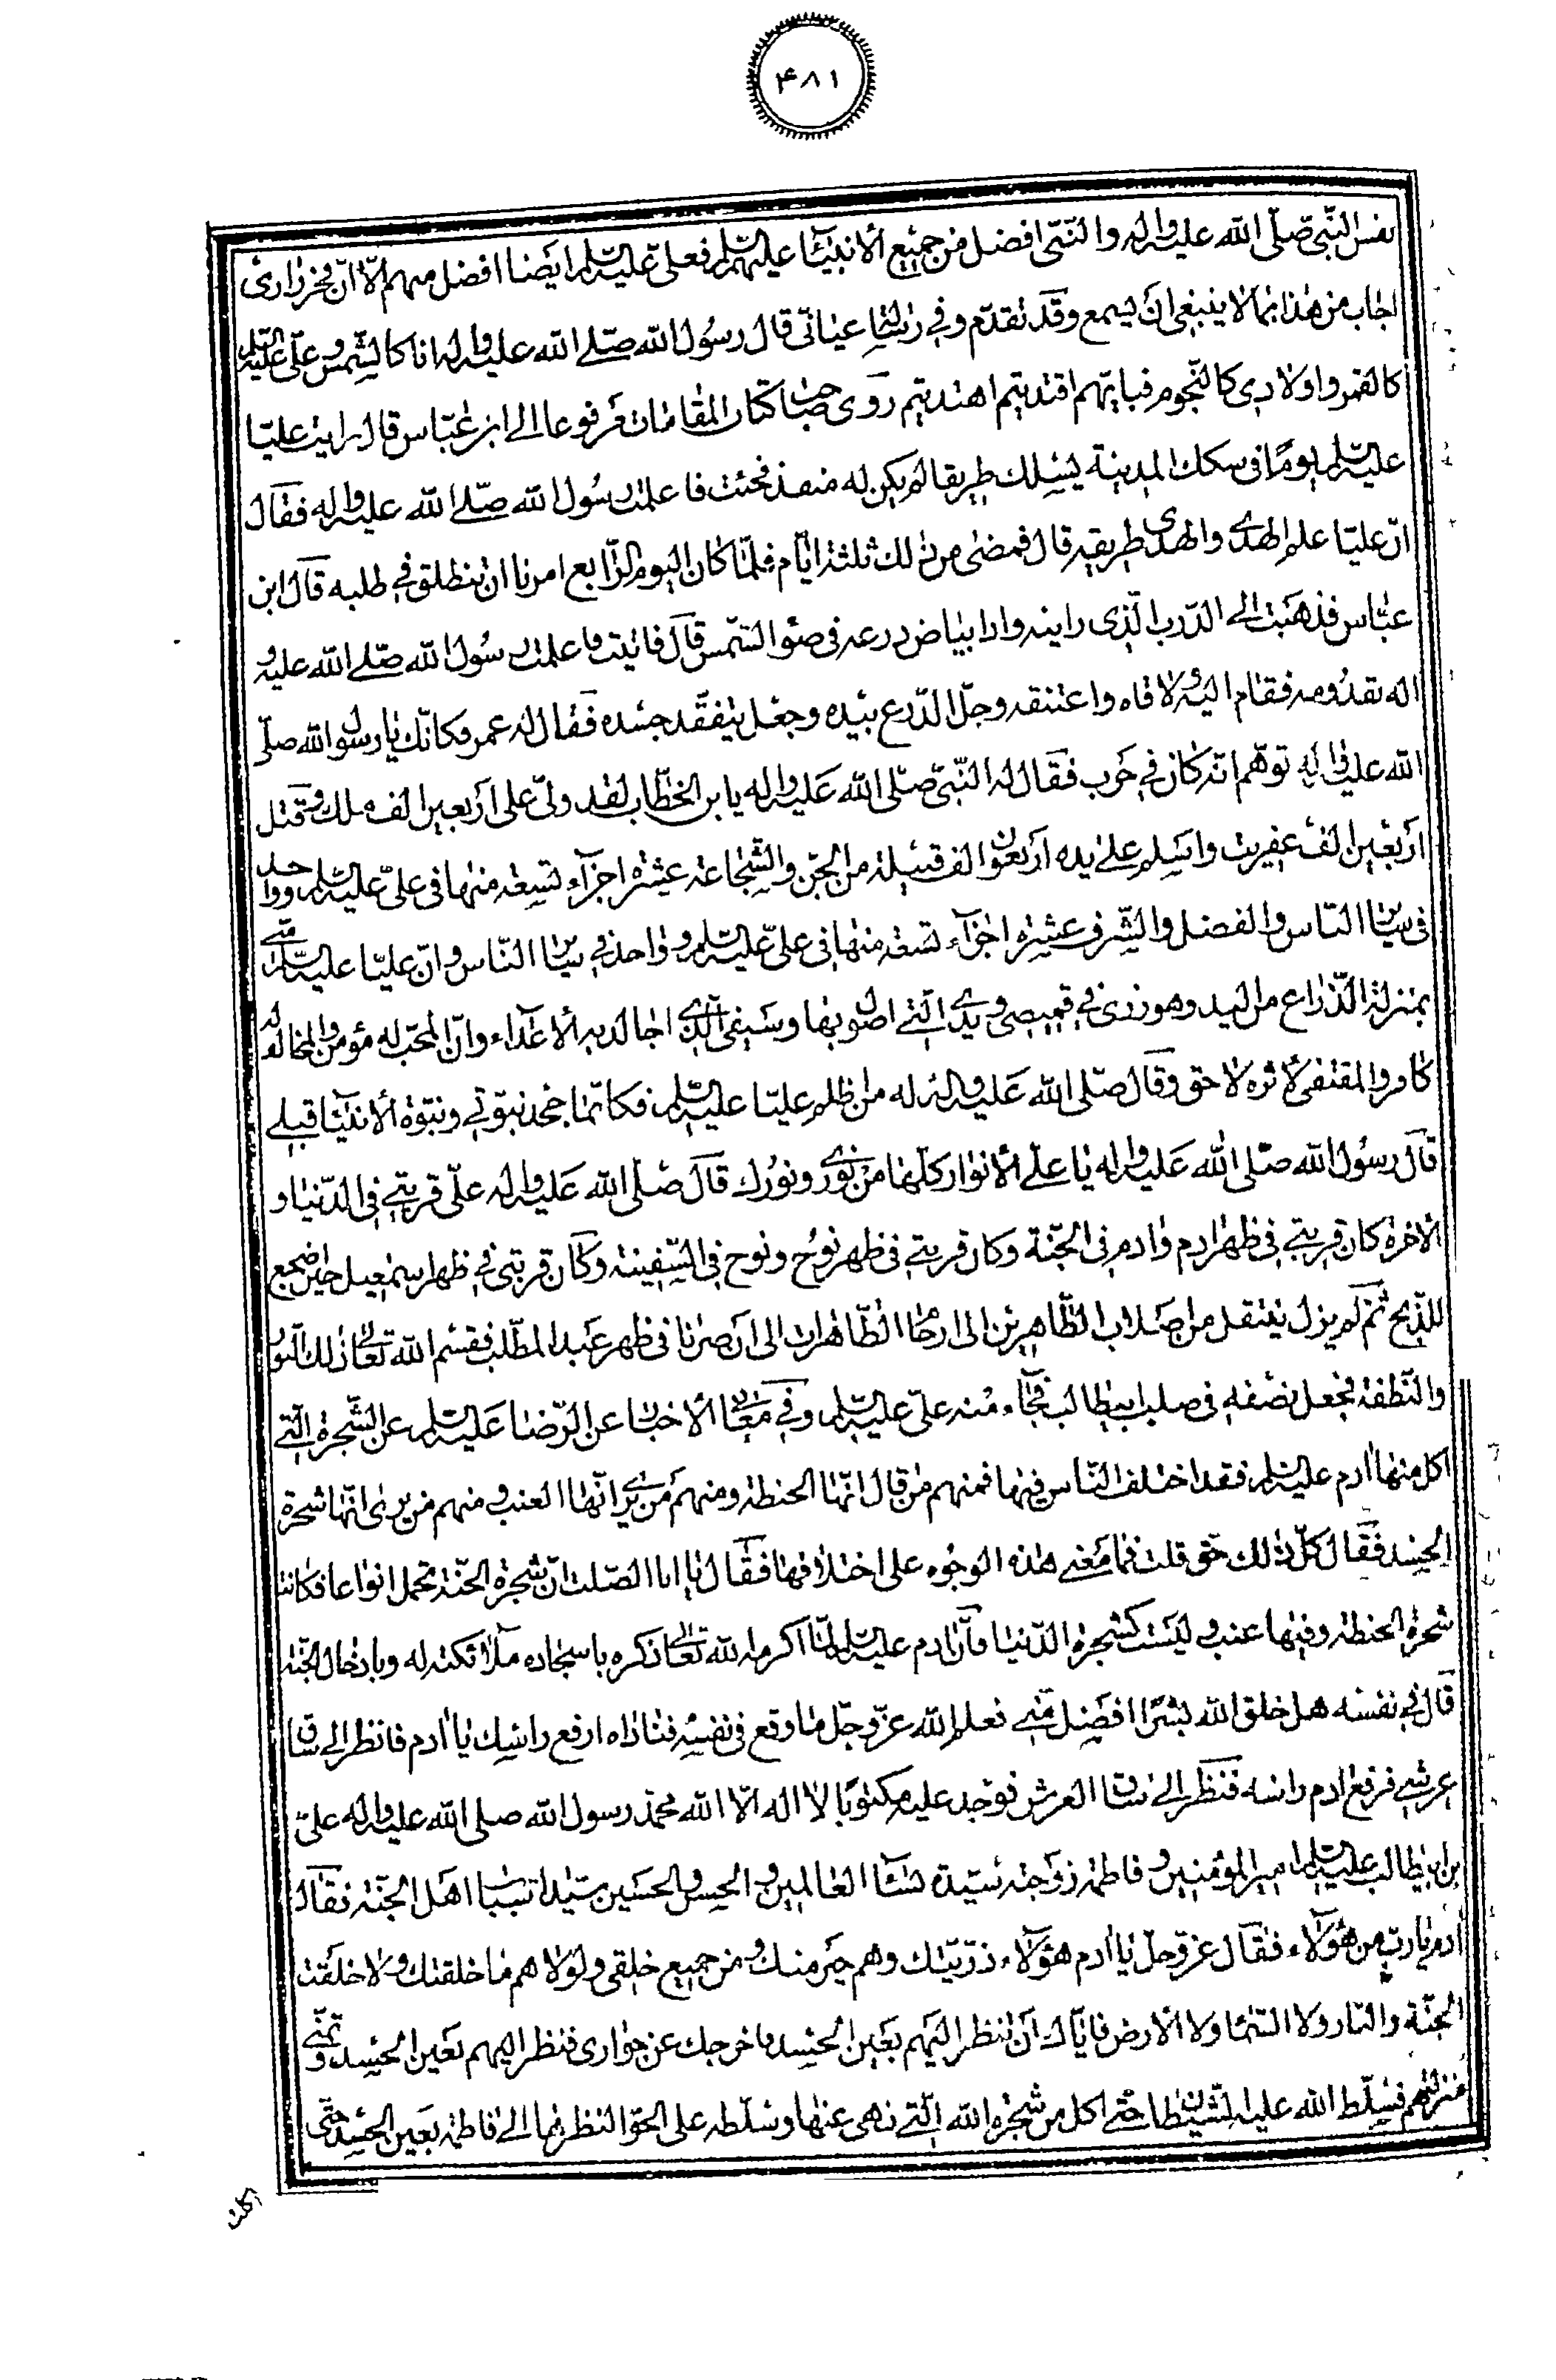 ۴۸۱
نفس النبی صلی الله علیه واله والنبی افضل من جمیع الانبیاء علیهم السلم فعلی علیه السلم ایضا افضل منهم الا ان فخر رازی
اجاب من هذا بما لا ینبغی ان یسمع وقد تقدم وفی قال رسول الله صلی الله علیه واله انا کالشمس وعلی علیه السلم
کالقمر واولادی کالنجوم فبایهم اقتدیتم اهتدیتم روی صاحب کتاب المقامات مرفوعا الی ابن عباس قال رایت علیا
علیه السلم یوما فی سکک المدینة یسلک طریقا لم یکن له منفذ فجئت فاعلمت رسول الله صلی الله علیه واله فقال
ان علیا علم الهدی والهدی طریقه قال فمضی من ذلک ثلثة ایام فلما کان الیوم الرابع امرنا ان ننطلق فی طلبه قال ابن
عباس فذهبت الی الدرب الذی راینه واذا بیاض درعه فی ضوا الشمس قال فاتیت فاعلمت رسول الله صلی الله علیه و
اله بقدومه فقام الیه ولاقاه واعتنقه وحل الدرع بیده وجعل یتفقد جسده فقال له عمر فکانک یا رسول الله صلی
الله علیه واله توهم انه کان فی حرب فقال له النبی صلی الله علیه واله یا بن الخطاب لقد ولی علی اربعین الف ملک وقتل
اربعین الف عفریت واسلم علی یده اربعون الف قبیلة من الجن والشجاعة عشرة اجزآء تسعة منها فی علی علیه السلم وواحد
فی سایر الناس والفضل والشرف عشرة اجزآء تسعة منها فی علی علیه السلم وواحد فی سایر الناس وان علیا علیه السلم منی
بمنزلة الذراع من الید وهو زری فی قمیصی ویدی التی اصول بها وسیفی الذی اجالد به الاعدآء وان المحب له مؤمن والمخالف له
کافر والمقتفی لاثره لاحق وقال صلی الله علیه واله له من ظلم علیا علیه السلم فکانما جحد نبوتی ونبوة الانبیآء قبلی
قال رسول الله صلی الله علیه واله یا علی الانوار کلها من نوری ونورک قال صلی الله علیه واله علی قریتی فی الدنیا و
الاخرة کان قریتی فی ظهر ادم وادم فی الجنة وکان قریتی فی ظهر نوح ونوح فی السفینة وکان قریتی فی ظهر اسمعیل حین اضجع
للذبح ثم لم یزل ینتقل من اصلاب الطاهرین الی ارحام الطاهرات الی ان صرنا فی ظهر عبد المطلب فقسم الله تعالی ذلک النور
والنطفة فجعل نصفه فی صلب ابیطالب فجآء منه علی علیه السلم وفی معانی الاخبار عن الرضا علیه السلم عن الشجرة التی
اکل منها ادم علیه السلم فقد اختلف الناس فیها فمنهم من قال انها الحنطة ومنهم من یری انها العنب ومنهم من یری انها شجرة
الحسد فقال کل ذلک حق قلت فما معنی هذه الوجوه علی اختلافها فقال یا ابا الصلت ان شجرة الجنة تحمل انواعا فکانت
شجرة الحنطة وفیها عنب و لیست کشجرة الدنیا وان ادم علیه السلم لما اکرمه الله تعالی ذکره باسجاده ملائکته له وبادخال الجنة
قال فی نفسه هل خلق الله بشرا افضل منی فعلم الله عز وجل ما وقع فی نفسه فناداه ارفع راسک یا ادم فانظر الی ساق
عرشی فرفع ادم راسه فنظر الی ساق العرش فوجد علیه مکتوبا لا اله الا الله محمد رسول الله صلی الله علیه واله علی
بن ابیطالب علیه السلم امیر المؤمنین و فاطمة زوجته سیدة نساء العالمین و الحسن والحسین سیدا شباب اهل الجنة فقال
ادم یا رب من هؤلآء فقال عز وجل یا ادم هؤلآء ذریتک وهم خیر منک و من جمیع خلقی ولولا هم ما خلقتک ولا خلقت
الجنة والنار ولا السماء ولا الارض فایاک ان تنظر الیهم بعین الحسد فاخرجک عن جواری فنظر الیهم بعین الحسد وتمنی
منزلتهم فسلط الله علیه الشیطان حتی اکل من شجرة الله التی نهی عنها وسلطه علی الحوا لنظرها الی فاطمة بعین الحسد حتی
اکلت